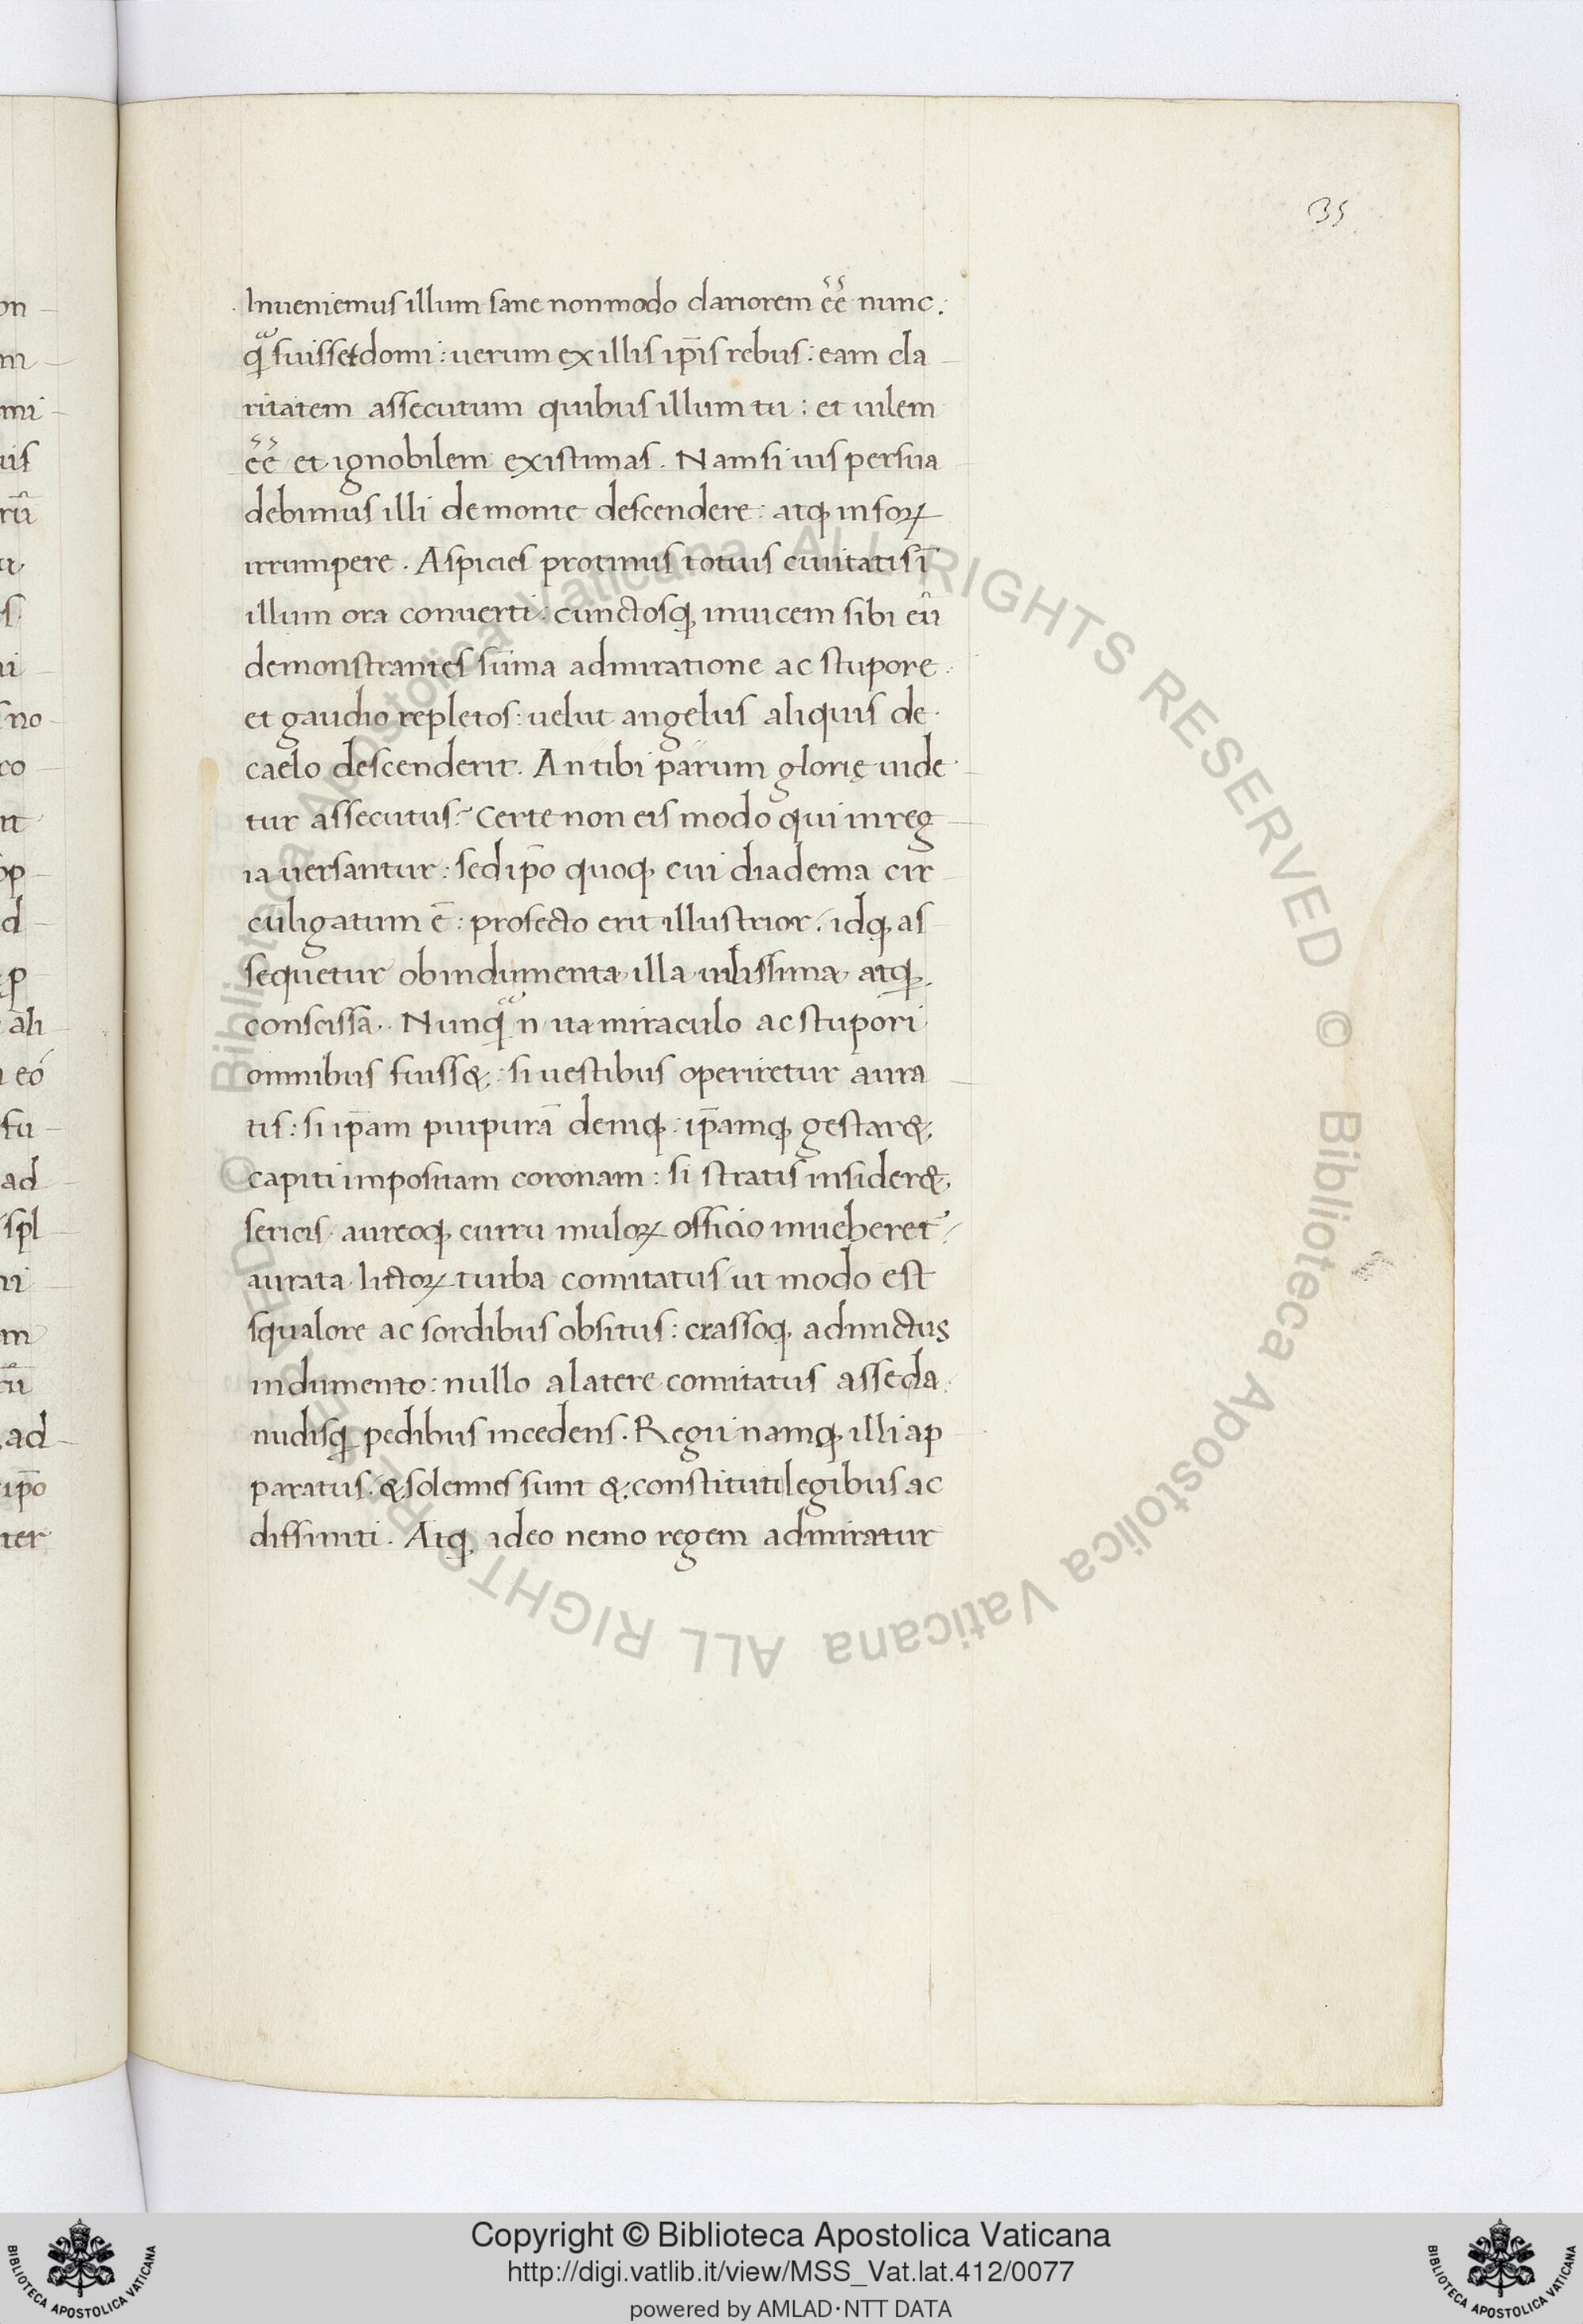 35
Inueniemus illum sane non modo clariorem ēē nunc:
qᷓ fuisset domi: uerum ex illis ip̄is rebus: eam cla
ritatem assecutum quibus illum tu: et uilem
ēē et ignobilem existimas. Nam si uis persua
debimus illi de monte descendere: atqꝫ in foꝝ
irrumpere. Aspicies protinus totius ciuitatis ī
illum ora conuerti: cunctosqꝫ inuicem sibi eū
demonstrantes sūma admiratione ac stupore
et gaudio repletos: uelut angelus aliquis de
caelo descenderit. An tibi parum glorię uide
tur assecutus? Certe non eis modo qui in reg
ia uersantur: sed ip̄o quoqꝫ cui diadema cir
culigatum ē: profecto erit illustrior: idqꝫ as
sequetur ob indumenta illa uilissima atqꝫ
conscissa. Nunqᷓ n ita miraculo ac stupori
omnibus fuiss&: si uestibus operiretur aura
tis: si ip̄am purpurā deniqꝫ: ip̄amqꝫ gestar&
capiti impositam coronam: si stratis insider&
sericis. aureoqꝫ curru muloꝝ officio inueheret᷑:
aurata lictoꝝ turba comitatus ut modo est
squalore ac sordibus obsitus: crassoqꝫ adinctus
indumento: nullo a latere comitatus assecla
nudisqꝫ pedibus incedens. Regii namqꝫ illi ap
paratus & solemnes sunt & constituti legibus ac
diffiniti. Atqꝫ ideo nemo regem admiratur
© Biblioteca Apostolica Vaticana ALL RIGHTS RESERVED © Biblioteca Apostolica Vaticana ALL RIGHTS RESERVED
Copyright © Biblioteca Apostolica Vaticana
http://digi.vatlib.it/view/MSS_Vat.lat.412/0077
powered by AMLAD·NTT DATA
BIBLIOTECA APOSTOLICA VATICANA
BIBLIOTECA APOSTOLICA VATICANA